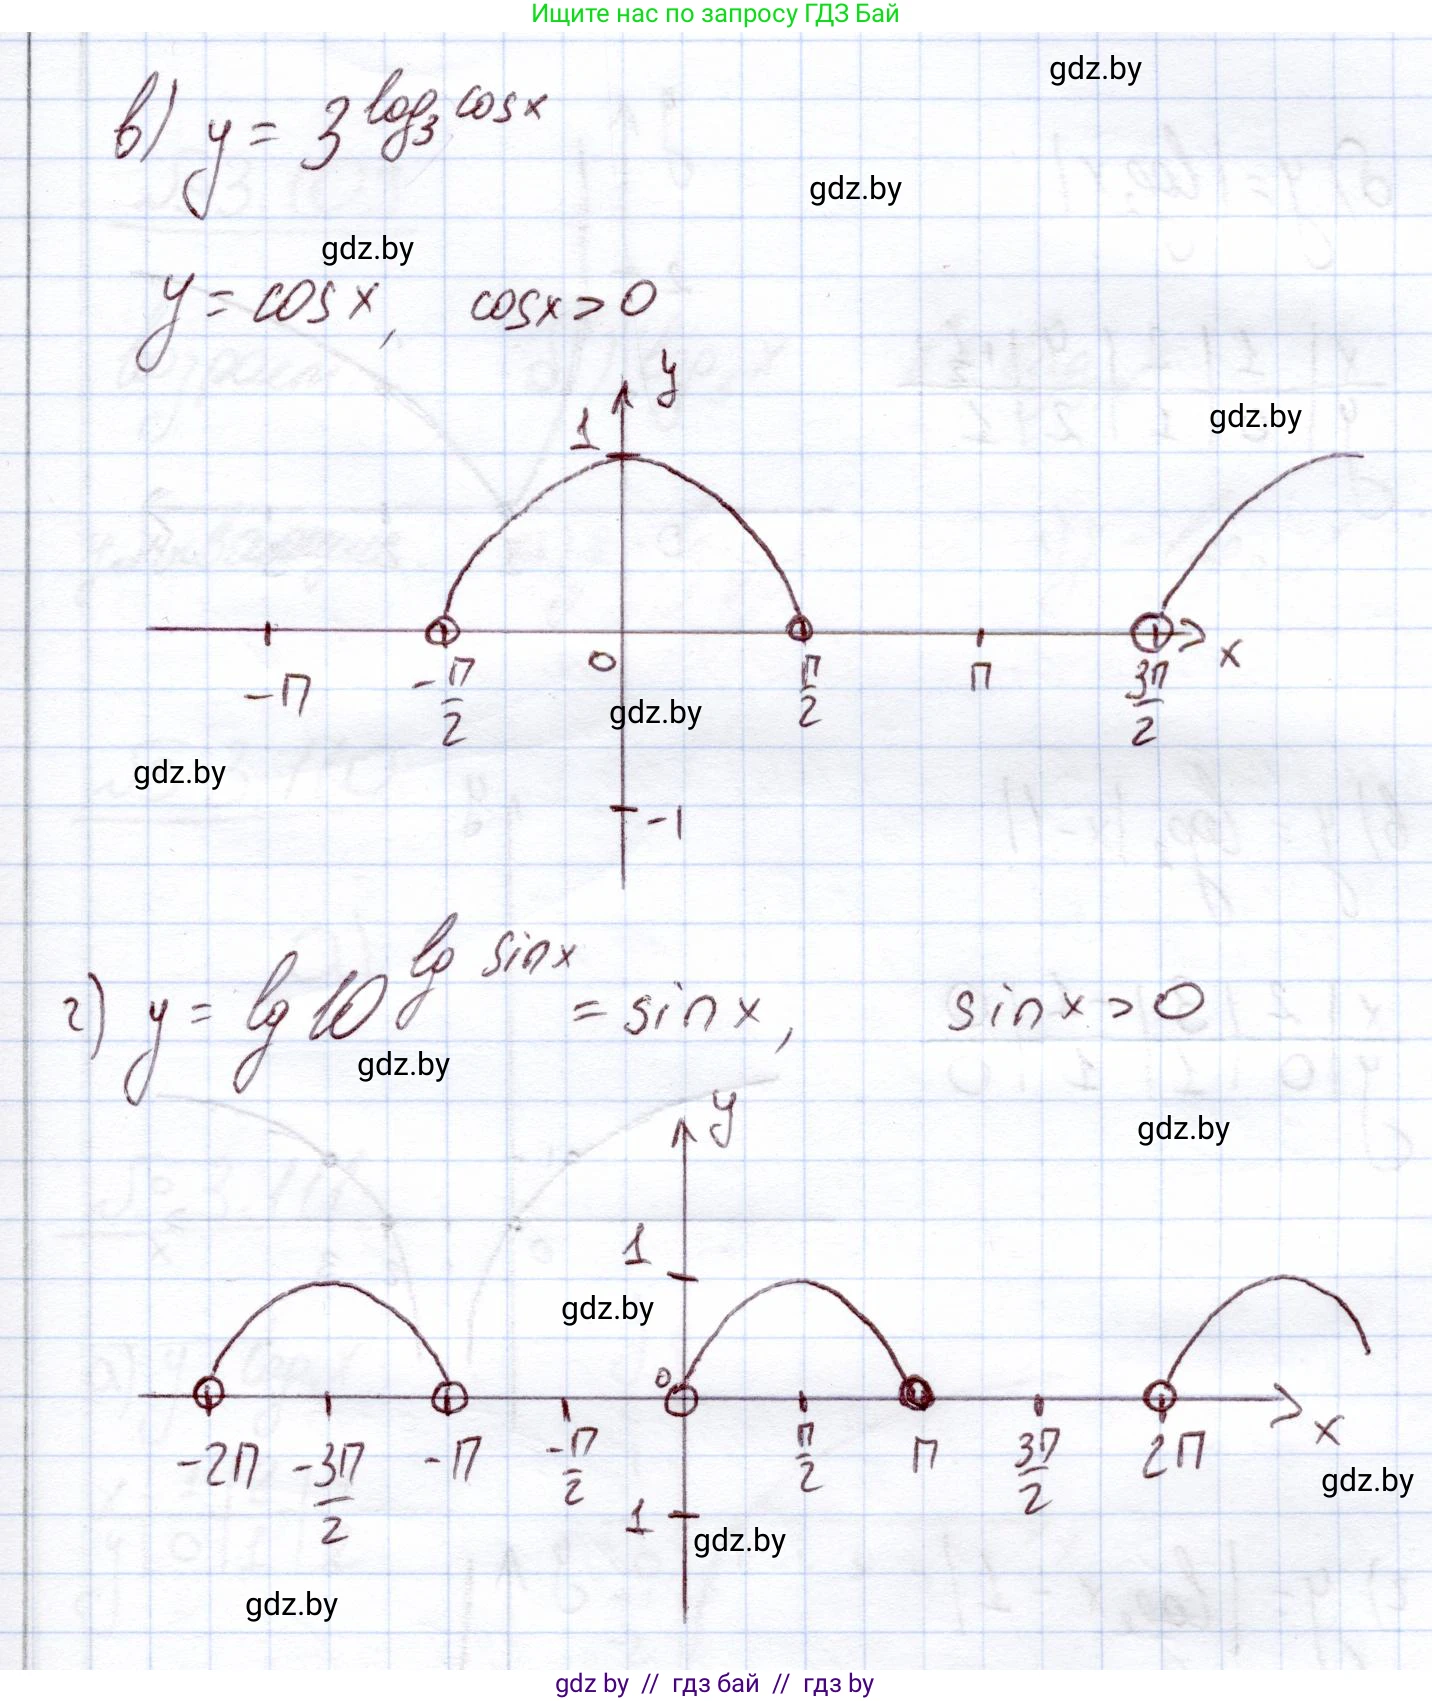 Ищите нас по запросу ГДЗ Бай
gdz.by
в) y = 3^{log_3 cosx}
gdz.by
gdz.by
y = cos x, cosx > 0
y
1
gdz.by
-π -π/2 0 π/2 π 3π/2 x
gdz.by
gdz.by
-1
г) y = lg 10^{lg sinx} = sin x, sin x > 0
gdz.by
y
gdz.by
1
gdz.by
0
-2π -3π/2 -π -π/2 π/2 π 3π/2 2π x
gdz.by
1
gdz.by
gdz.by
gdz by // гдз бай // гдз by